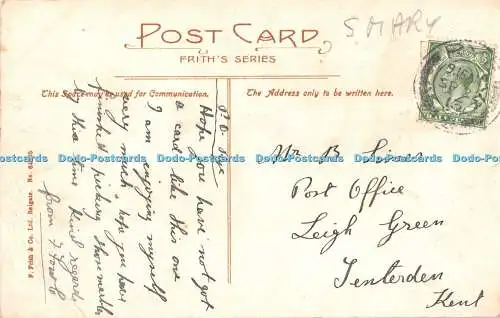 S MARY
POST CARD
FRITH'S SERIES
This Space may be used for Communication.
The Address only to be written here.
Hope you have not got
a card like this one
I am enjoying myself
very much, hope you have
finished picking those marbles
by this time kind regards
from F
Mr B
Post Office
Leigh Green
Tenterden
Kent
F. Frith & Co. Ltd., Reigate. No.
Dodo-Postcards Dodo-Postcards Dodo-Postcards Dodo-Postcards Dodo-Postcards